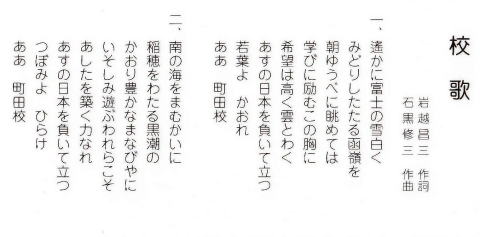 校歌
岩越昌三 作詞
石黒修三 作曲
一、遙かに富士の雪白く
みどりしたたる函嶺を
朝ゆうべに眺めては
学びに励むこの胸に
希望は高く雲とわく
あすの日本を負いて立つ
若葉よ かおれ
ああ 町田校
二、南の海をまむかいに
稲穂をわたる黒潮の
かおり豊かなまなびやに
いそしみ遊ぶわれらこそ
あしたを築く力なれ
あすの日本を負いて立つ
つぼみよ ひらけ
ああ 町田校